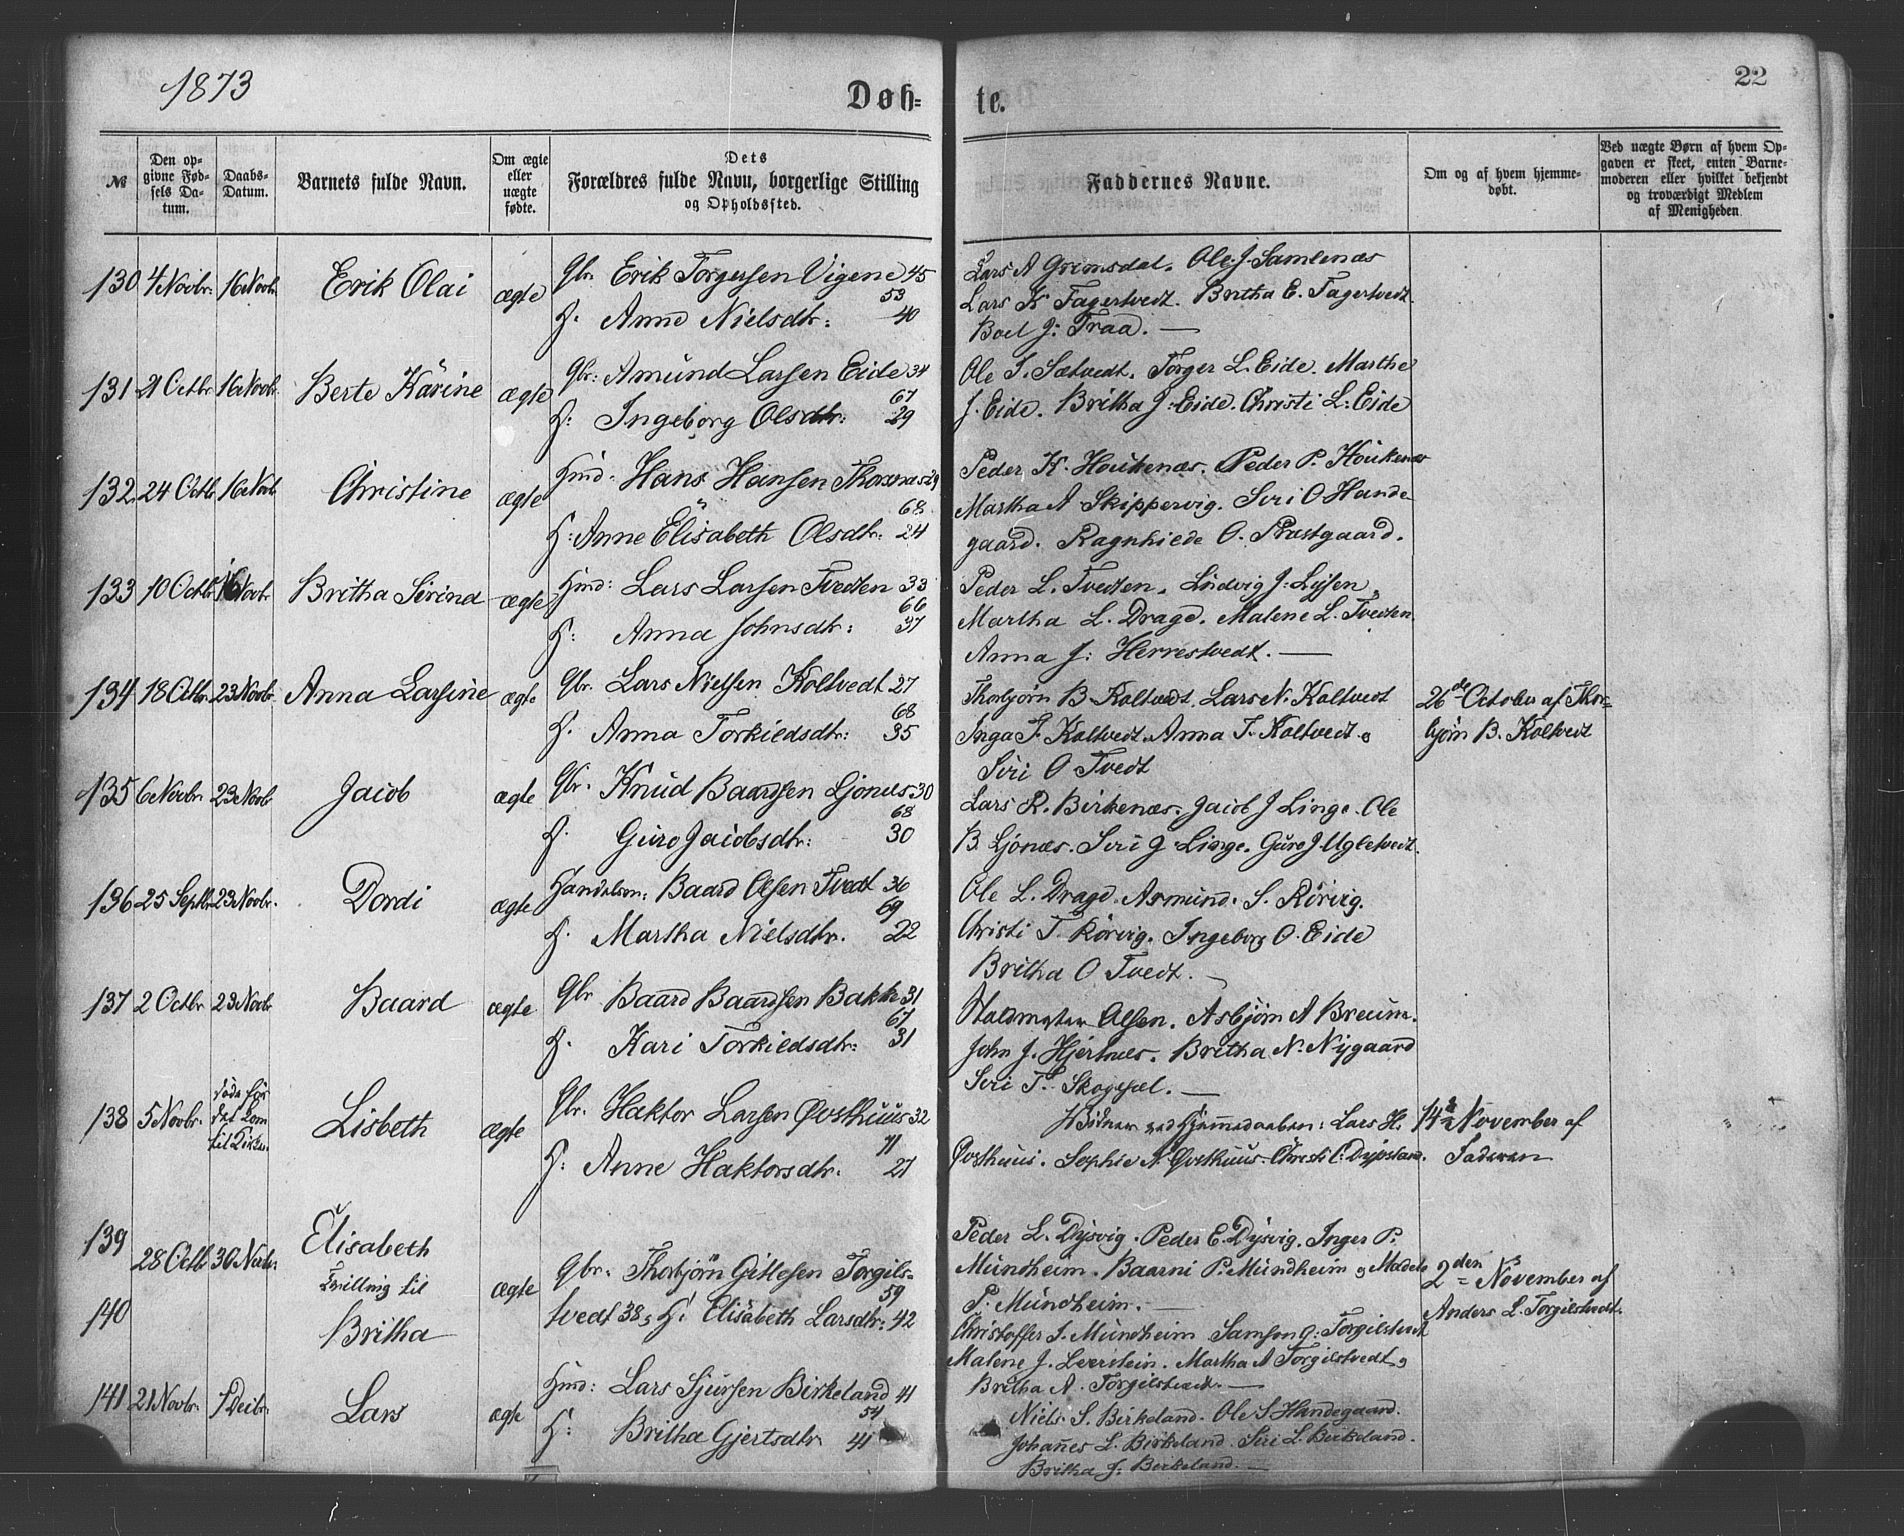 1873
22
Døb-
te.
№
Den op-
givne Fød-
sels Da-
tum.
Daabs-
Datum.
Barnets fulde Navn.
Om ægte
eller
uægte
fødte.
Dets
Forældres fulde Navn, borgerlige Stilling
og Opholdssted.
Faddernes Navne.
Om og af hvem hjemme-
døbt.
Ved uægte Børn af hvem Op-
gaven er skeet, enten Barne-
moderen eller hvilket bekjendt
og troværdigt Medlem
af Menigheden
130 4 Novbr. 16 Novbr. Erik Olai ægte Gbr. Erik Torgersen Vigene 45
53
H. Anne Nielsdtr: 40
Lars A Grimsdal. Ole J. Samlenæs
Lars K Fagertvedt. Britha E. Fagertvedt.
Boel J: Traa. —
131 21 Octbr. 16 Novbr. Berte Karine ægte Gbr: Amund Larsen Eide 34
67
H: Ingeborg Olsdtr: 29
Ole S. Sætvedt. Torger L. Eide. Marthe
J. Eide. Britha J: Eide. Christi L: Eide
132 24 Octbr. 16 Novbr. Christine ægte Hmd: Hans Hansen 29
68
H: Anne Elisabeth Olsdtr: 24
Peder K. Houkenæs. Peder P. Houkenæs
Martha A Skippervig. Siri O Hande-
gaard. Ragnhilde O. Prestgaard.
133 10 Octbr. 16 Novbr. Britha Sirina ægte Hmd: Lars Larsen Tvedten 33
66
H: Anna Johnsdtr: 37
Peder L. Tvedten. Ludvig J:
Martha L. Drage. Malene L. Tvedten
Anna J: Herrestvedt. —
134 18 Octbr. 23 Novbr. Anna Larsine ægte Gbr. Lars Nielsen Koltvedt 27
68
H. Anna Torkieldsdtr: 35
Thorbjørn B Koltvedt. Lars N. Koltvedt
Inga T. Koltvedt. Anna T. Koltvedt.
Siri O Tvedt
26de October af Thor-
bjørn B. Koltvedt
135 6 Novbr. 23 Novbr Jacob ægte Gbr. Knud Baardsen Ljonæs 30
68
H. Guro Jacobsdtr: 30
Lars R. Birkenæs. Jacob J Linge. Ole
B. Ljonæs. Siri J Linge. Guro J. Ugletvedt.
136 25 Septbr. 23 Novbr. Dordi ægte Handelsm: Baard Olsen Tvedt 36
69
H. Martha Nielsdtr. 22
Ole L. Drage. Asmund. S. Rörvig.
Christi T. Rörvig. Ingeborg O. Eide
Britha O Tvedt. —
137 2 Octbr 23 Novbr Baard ægte Gbr Baard Baardsen Bakke 31
67
H. Kari Torkieldsdtr: 31
Olsen. Asbjørn A
John J. Hjertnes. Britha N. Nygaard
Siri T. —
138 5 Novbr. Døde før
det kom
til Kirken Lisbeth ægte Gbr. Haktor Larsen Østhuus 32
71
H: Anne Haktorsdtr. 27
Vidner ved Hjemmedaaben: Lars H.
Østhuus. Sophie N. Østhuus. Christi C.
14de November af
Faderen
139
28 Octbr 30 Novbr. Elisabeth
Tvilling til
140
Britha
ægte Gbr. Thorbjörn Gitlesen Torgils-
59
tvedt 38, H. Elisabeth Larsdtr: 42
Peder L. Dysvig. Peder E. Dysvig. Inger P.
Mundheim. Baarni P. Mundheim, Madele
P. Mundheim. —
Christoffer J. Mundheim Samson G: Torgilstvedt
Malene J. Martha A Torgilstvedt,
Britha A. Torgilstvedt. —
2den November af
Anders L. Torgilstvedt.
141 21 Novbr. 1 Decbr. Lars ægte Hmd: Lars Sjursen Birkeland 41
54
H: Britha Gjertsdtr 41
Niels S. Birkeland. Ole S Handegaard.
Johannes L. Birkeland. Siri L. Birkeland.
Britha J: Birkeland. —